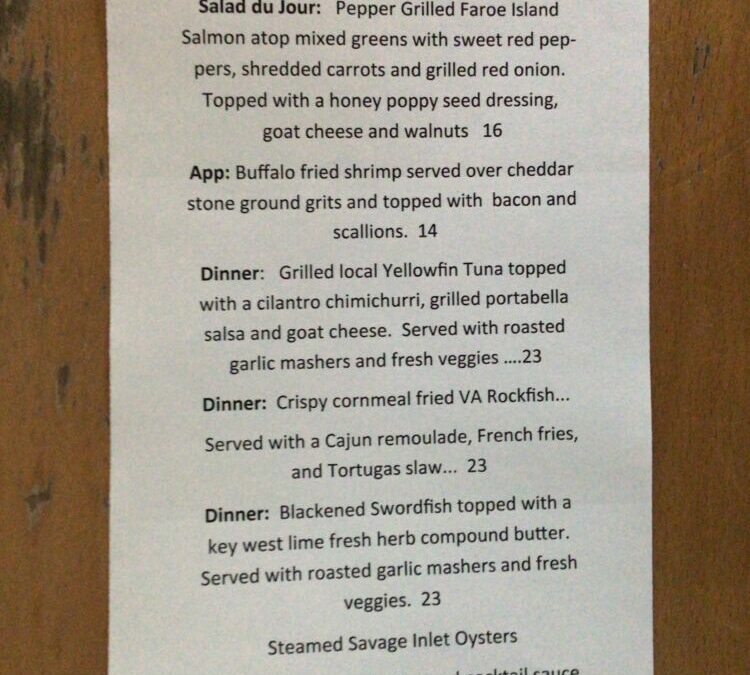 Salad du Jour: Pepper Grilled Faroe Island
Salmon atop mixed greens with sweet red pep-
pers, shredded carrots and grilled red onion.
Topped with a honey poppy seed dressing,
goat cheese and walnuts 16
App: Buffalo fried shrimp served over cheddar
stone ground grits and topped with bacon and
scallions. 14
Dinner: Grilled local Yellowfin Tuna topped
with a cilantro chimichurri, grilled portabella
salsa and goat cheese. Served with roasted
garlic mashers and fresh veggies ....23
Dinner: Crispy cornmeal fried VA Rockfish...
Served with a Cajun remoulade, French fries,
and Tortugas slaw... 23
Dinner: Blackened Swordfish topped with a
key west lime fresh herb compound butter.
Served with roasted garlic mashers and fresh
veggies. 23
Steamed Savage Inlet Oysters
cocktail sauce